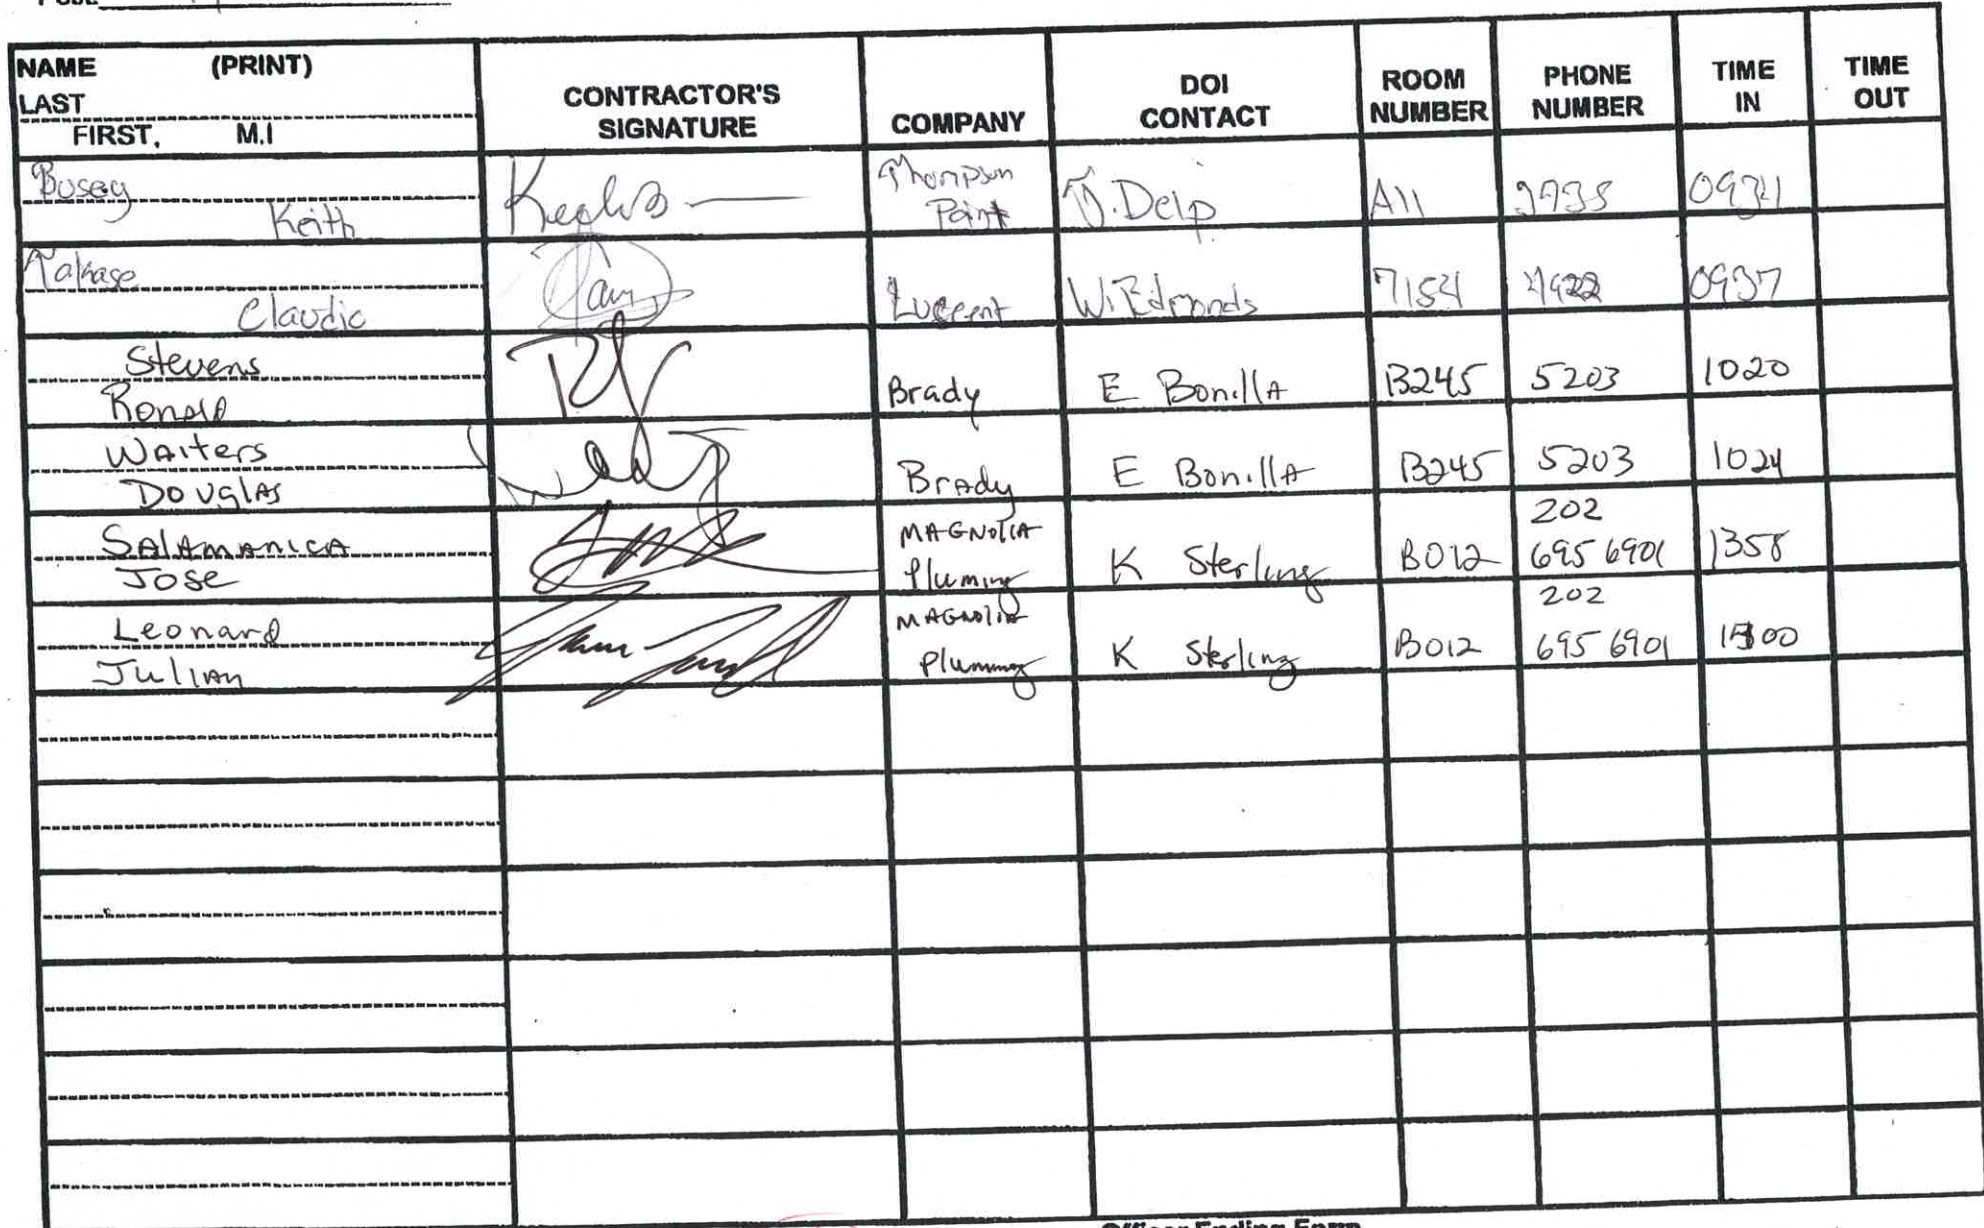 NAME (PRINT)
LAST
FIRST, M.I
CONTRACTOR'S
SIGNATURE
COMPANY
DOI
CONTACT
ROOM
NUMBER
PHONE
NUMBER
TIME
IN
TIME
OUT
Busey
Keith
Thompson
Paint
J. Delp
All
0934
Claudic
Lucent
W. Edmonds
7154
0937
Stevens
Ronald
Brady
E Bonilla
B245
5203
1020
Waiters
Douglas
Brady
E Bonilla
B245
5203
1024
SALAMANICA
Jose
MAGNOLIA
Pluming
K Sterling
B012
202
695 6901
1358
Leonard
Julian
MAGNOLIA
Plumming
K Sterling
B012
202
695 6901
Officer Ending Form